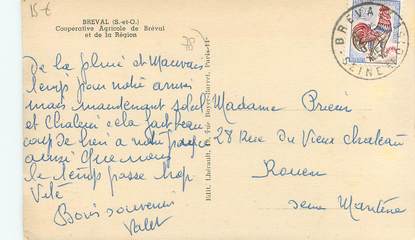 15 €
BREVAL (S.-et-O.)
Coopérative Agricole de Bréval
et de la Région
De la pluie et Mauvais
temps pour notre arrivé
mais maintenant soleil
et Chaleur cela fait beau
coup de bien a notre
aussi Que nous
le temps passe trop
Vite
Bons souvenirs
Valet
Edit. Lhérault, rue Paris-11e
BREVAL
SEINE
Madame Prieur
28 Rue du Vieux chateau
Rouen
Seine Maritime